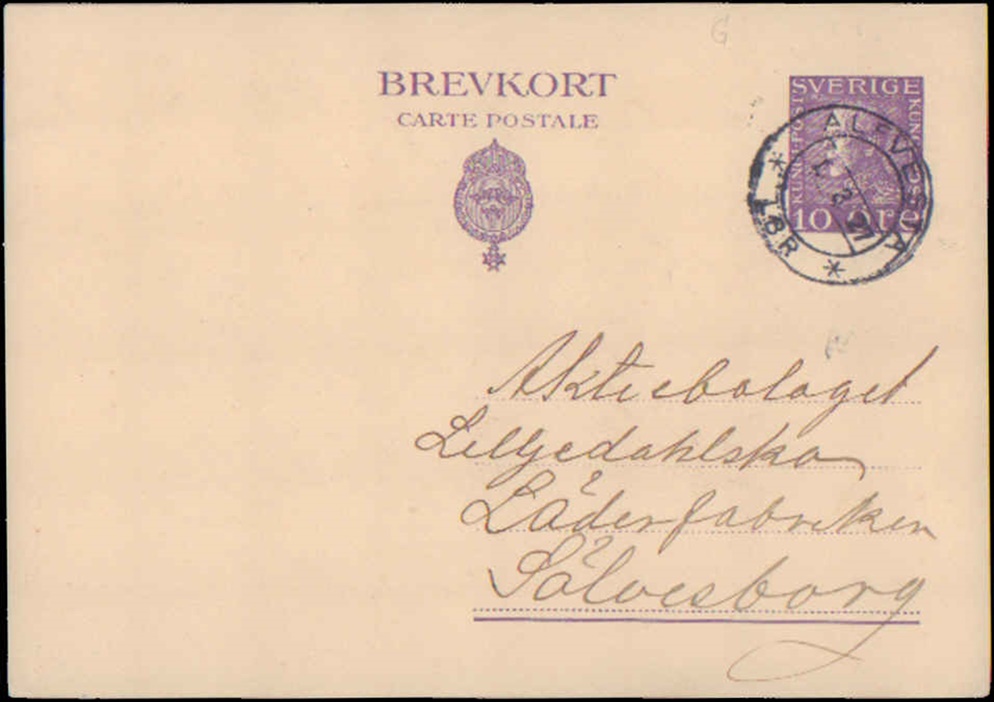 BREVKORT
CARTE POSTALE
SVERIGE
10 ÖRE
ALFVESTA
LBR
Aktiebolaget
Liljedahlska
Läderfabriken
Sölvesborg